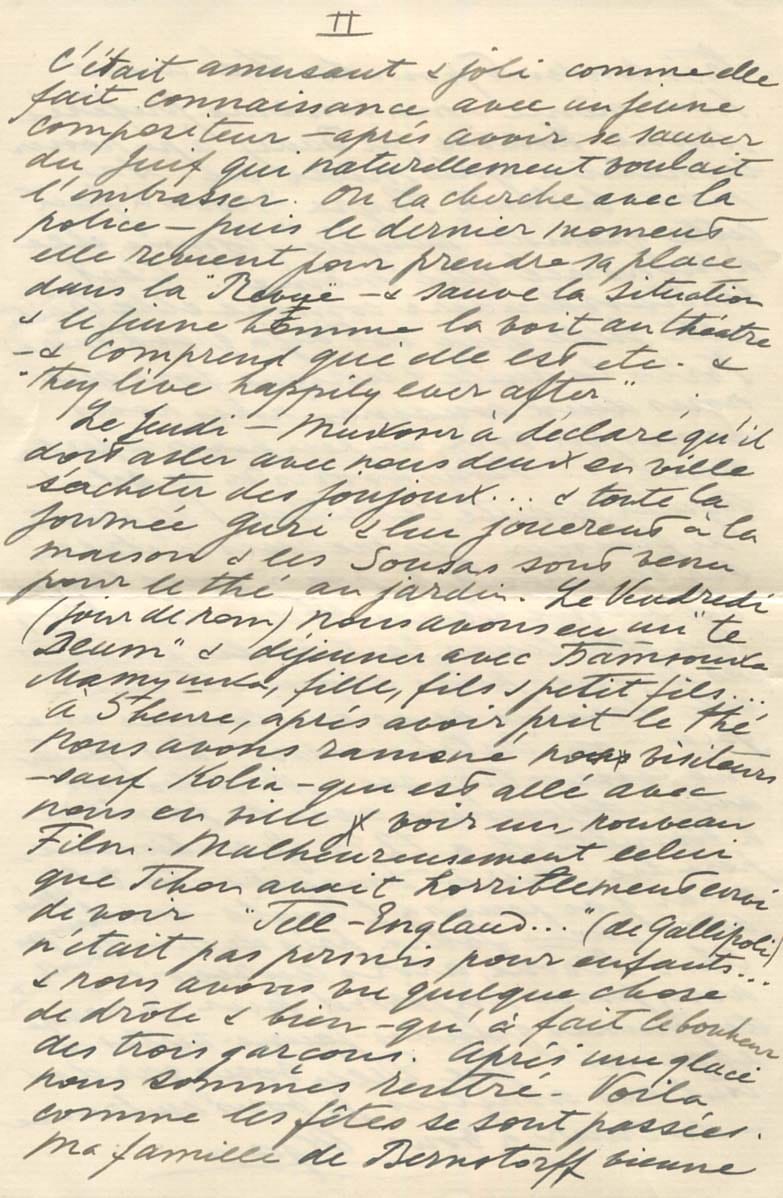 II
C'était amusant & joli comme elle
fait connaissance avec un jeune
compositeur – après avoir se sauver
du Juif qui naturellement voulait
l'embrasser. On la cherche avec la
police – puis le dernier moment
elle revient pour prendre sa place
dans la "Revue – & sauve la situation
& le jeune homme la voit au théatre
– & comprend qui elle est etc. &
"they live happily ever after".
Le Jeudi – à déclaré qu'il
doit aller avec nous deux en ville
s'acheter des joujoux... & toute la
journée Guri & lui jouerent à la
maison & les Sousas sont venu
pour le thé au jardin. Le Vendredi
(jour de nom) nous avons eu un "te
Deum" & déjeuner avec
fille, fils & petit fils...
à 5 heure, après avoir prit le thé
nous avons ramené nos visiteurs
– sauf Kolia – qui est allé avec
nous en ville voir un nouveau
Film. Malheureusement celui
que Tihon avait horriblement envi
de voir "Tell-England..." (de Gallipoli)
n'était pas permis pour enfants...
& nous avons vu quelque chose
de drôle & bien – qu' à fait le bonheur
des trois garçons. Après une glace
nous sommes rentré – Voila
comme les fêtes se sont passées.
Ma famille de Bernstorff vienne